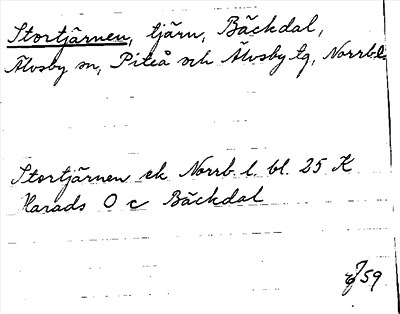 Stortjärnen, tjärn, Bäckdal,
Älvsby sn, Piteå och Älvsby tg, Norrb.l.
Stortjärnen ek Norrb. l. bl. 25 K
Harads O c Bäckdal
59